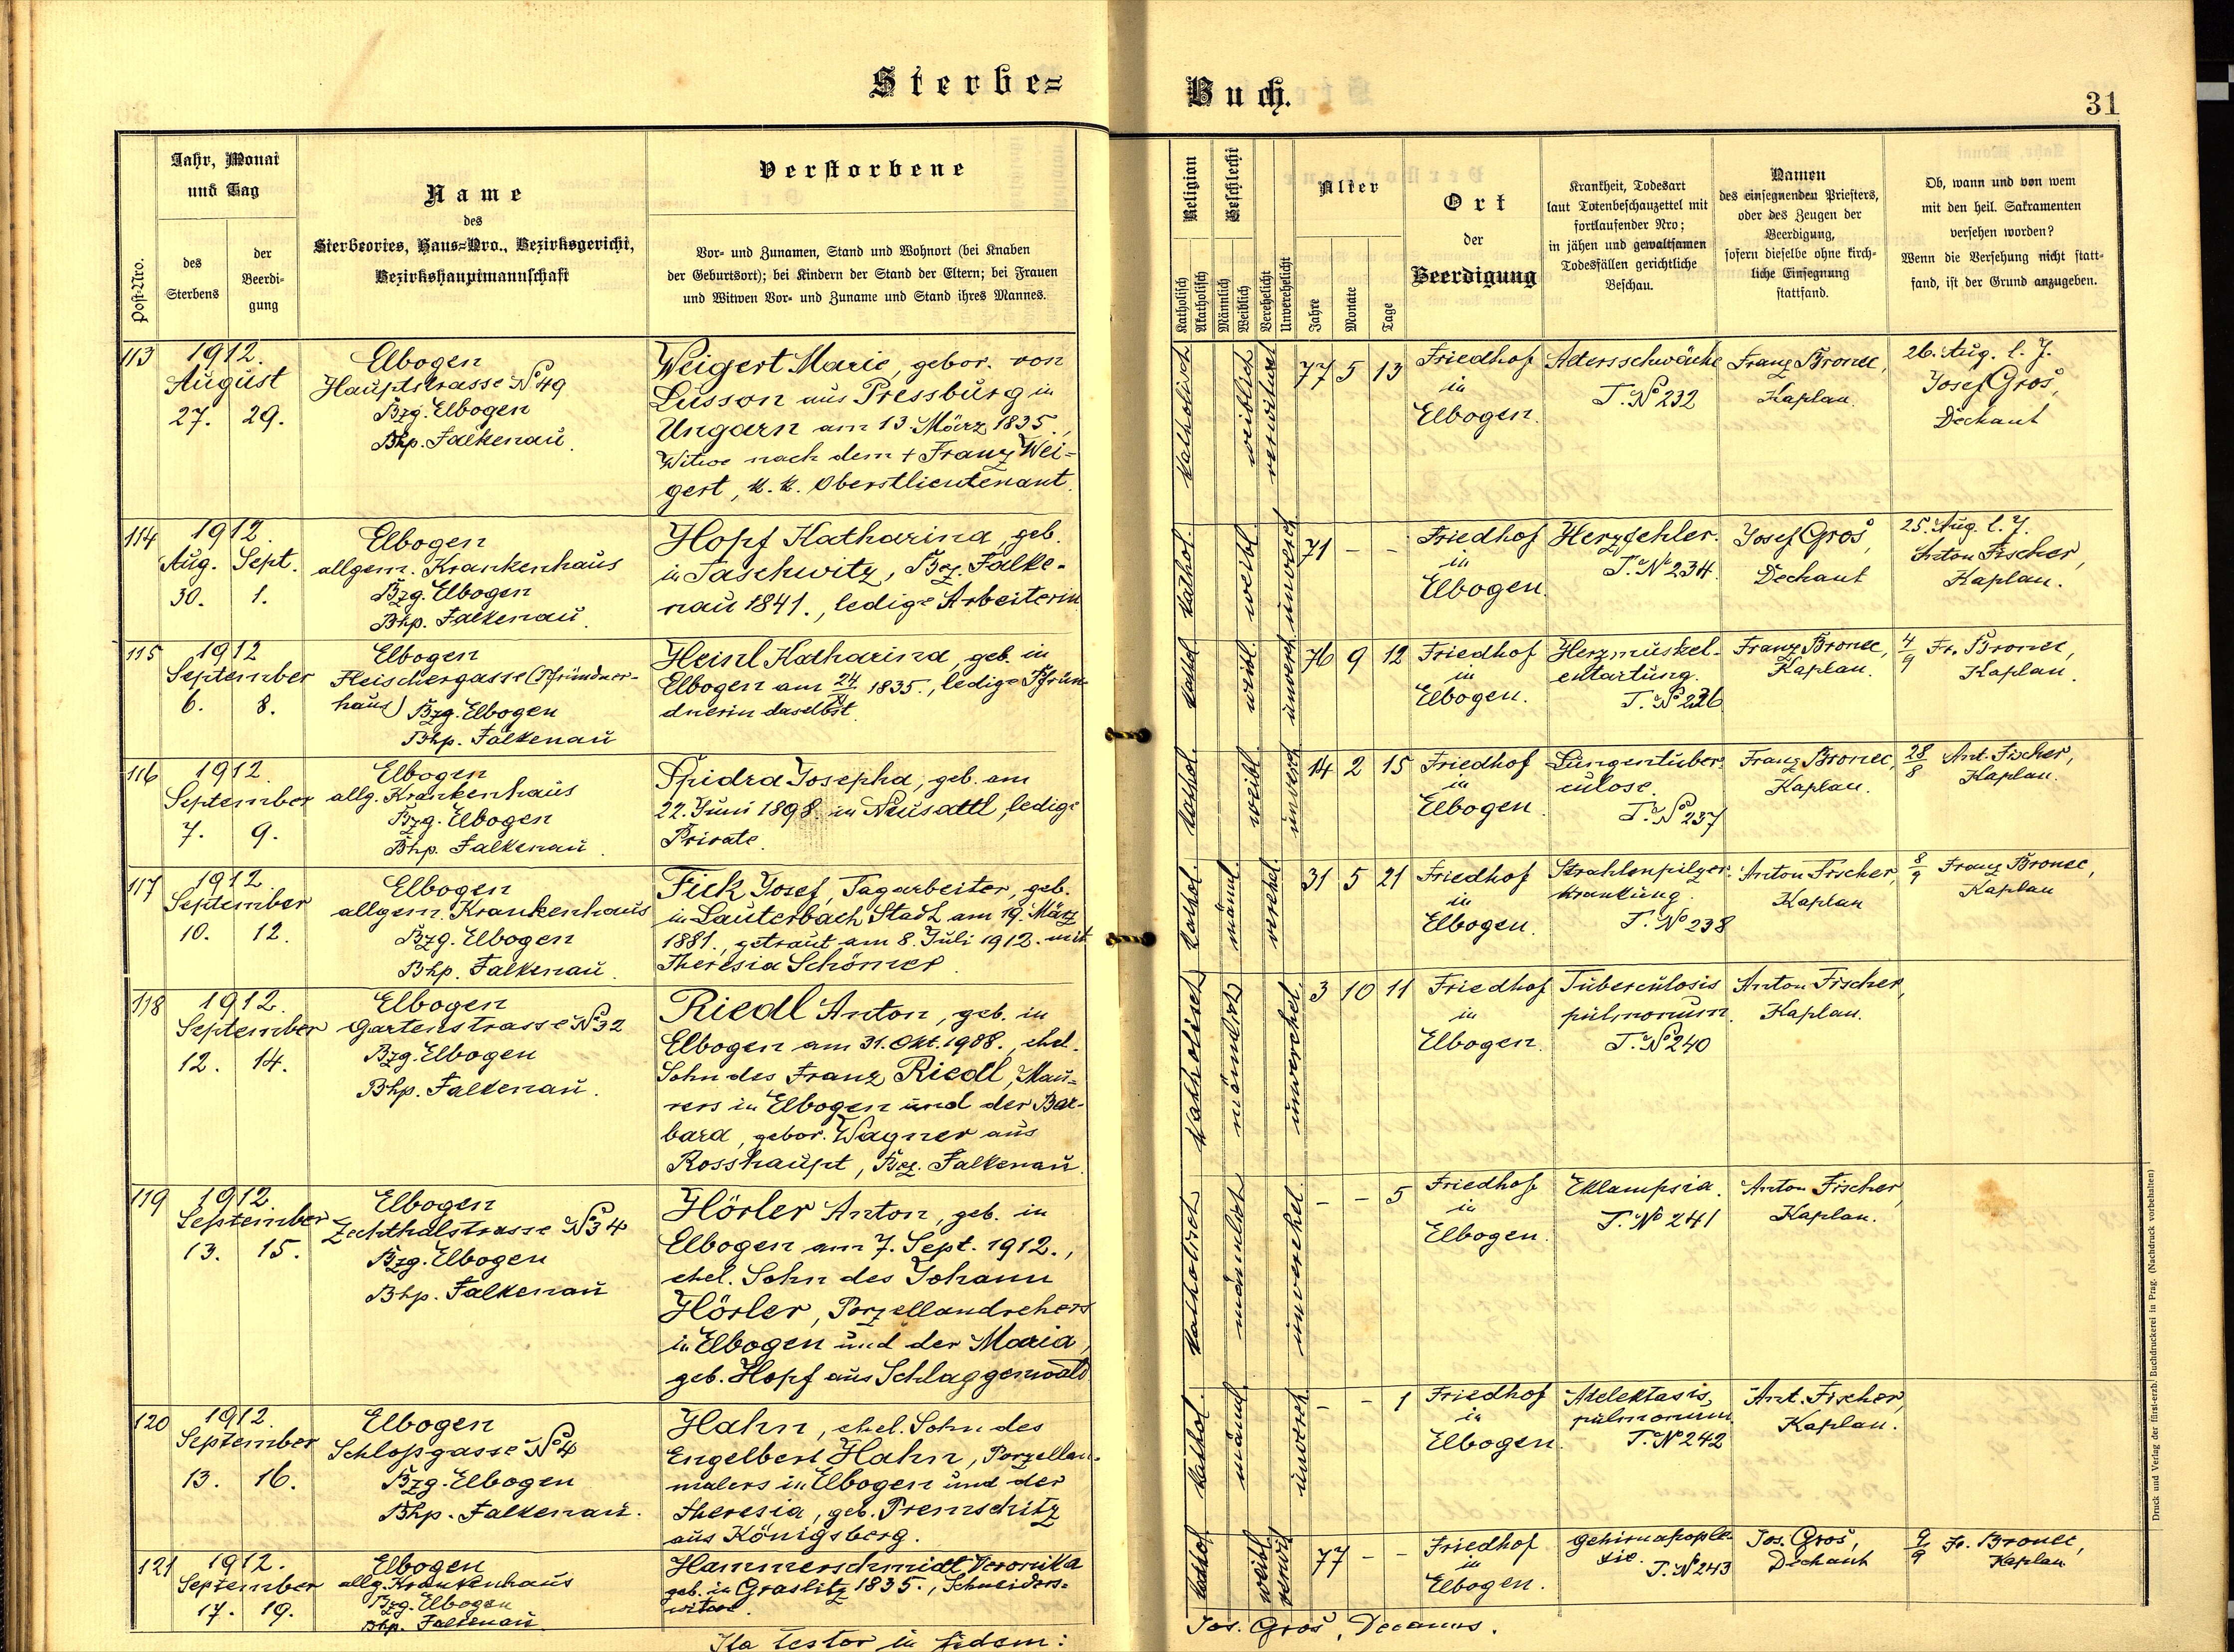 Sterbe=
Buch.
31
Jahr, Monat
und Tag
Name
des
Sterbeortes, Haus=Nro., Bezirksgericht,
Bezirkshauptmannschaft
Verstorbene
Post-Nro.
des
Sterbens
der
Beerdi-
gung
Vor- und Zunamen, Stand und Wohnort (bei Knaben
der Geburtsort); bei Kindern der Stand der Eltern; bei Frauen
und Witwen Vor- und Zuname und Stand ihres Mannes.
Religion
Geschlecht
Alter
Katholisch
Akatholisch
Männlich
Weiblich
Verehelicht
Unverehelicht
Jahre
Monate
Tage
Ort
der
Beerdigung
Krankheit, Todesart
laut Totenbeschauzettel mit
fortlaufender Nro;
in jähen und gewaltsamen
Todesfällen gerichtliche
Beschau.
Namen
des einsegnenden Priesters,
oder des Zeugen der
Beerdigung,
sofern dieselbe ohne kirch-
liche Einsegnung
stattfand.
Ob, wann und von wem
mit den heil. Sakramenten
versehen worden?
Wenn die Versehung nicht statt-
fand, ist der Grund anzugeben.
113
1912.
August
27. 29.
Elbogen
Hauptstrasse № 49
Bzg. Elbogen
Bhp. Falkenau.
Weigert Marie, gebor. von
Lusson aus Pressburg in
Ungarn am 13. März 1835.,
Witwe nach dem + Franz Wei-
gert, k. k. Oberstlieutenant.
katholisch
weiblich
verwitwet
77 5 13
Friedhof
in
Elbogen.
Altersschwäche
T. № 232
Franz Bronec,
Kaplan.
26. Aug. l. J.
Josef Groš,
Dechant
114
1912.
Aug. Sept.
30. 1.
Elbogen
allgem. Krankenhaus
Bzg. Elbogen
Bhp. Falkenau.
Hopf Katharina, geb.
in Taschwitz, Bez. Falke-
nau 1841., ledige Arbeiterin
kathol.
weibl.
unverech.
71 - -
Friedhof
in
Elbogen.
Herzfehler.
T. № 234.
Josef Groš,
Dechant
25. Aug. l. J.
Anton Fischer,
Kaplan.
115
1912
September
6. 8.
Elbogen
Fleischergasse (Pfründner-
haus) Bzg. Elbogen
Bhp. Falkenau
Heinl Katharina, geb. in
Elbogen am 24/XI 1835., ledige Pfrün-
dnerin daselbst.
kathol.
weibl.
unverech.
76 9 12
Friedhof
in
Elbogen.
Herzmuskel-
entartung.
T. № 236
Franz Bronec,
Kaplan.
4/9 Fr. Bronec,
Kaplan.
116
1912.
September
7. 9.
Elbogen
allg. Krankenhaus
Bzg. Elbogen
Bhp. Falkenau.
Spidra Josepha, geb. am
22. Juni 1898. in Neusattl, ledige
Private.
kathol.
weibl.
unverech.
14 2 15
Friedhof
in
Elbogen.
Lungentuber-
culose.
T. № 237
Franz Bronec,
Kaplan.
28/8 Ant. Fischer,
Kaplan.
117
1912
September
10. 12.
Elbogen
allgem. Krankenhaus
Bzg. Elbogen
Bhp. Falkenau.
Fick Josef, Tagarbeiter, geb.
in Lauterbach Stadt am 19. März
1881., getraut am 8. Juli 1912. mit
Theresia Schömer.
kathol.
männl.
verehel.
31 5 21
Friedhof
in
Elbogen.
Strahlenpilzer-
krankung.
T. № 238
Anton Fischer,
Kaplan
8/9 Franz Bronec,
Kaplan
118
1912.
September
12. 14.
Elbogen
Gartenstrasse № 32
Bzg. Elbogen
Bhp. Falkenau.
Riedl Anton, geb. in
Elbogen am 31. Okt. 1908., ehel.
Sohn des Franz Riedl, Mau-
rers in Elbogen und der Bar-
bara, gebor. Wagner aus
Rosshaupt, Bez. Falkenau.
katholisch
männlich
unverehel.
3 10 11
Friedhof
in
Elbogen.
Tuberculosis
pulmonum.
T. № 240
Anton Fischer,
Kaplan.
119
1912
September
13. 15.
Elbogen
Zechthalstrasse № 34
Bzg. Elbogen
Bhp. Falkenau
Hörler Anton, geb. in
Elbogen am 7. Sept. 1912.,
ehel. Sohn des Johann
Hörler, Porzellandrehers
in Elbogen und der Maria,
geb. Hopf aus Schlaggenwald
katholisch
männlich
unverehel.
- - 5
Friedhof
in
Elbogen.
Eklampsia.
T. № 241
Anton Fischer,
Kaplan.
120
1912.
September
13. 16.
Elbogen
Schloßgasse № 4
Bzg. Elbogen
Bhp. Falkenau.
Hahn, ehel. Sohn des
Engelbert Hahn, Porzellan-
malers in Elbogen und der
Theresia, geb. Premschitz
aus Königsberg.
kathol.
männl.
unverech.
- - 1
Friedhof
in
Elbogen.
Atelektasis
pulmonum.
T. № 242
Ant. Fischer,
Kaplan.
121
1912.
September
17. 19.
Elbogen
allg. Krankenhaus
Bzg. Elbogen
Bhp. Falkenau.
Hammerschmidt Veronika
geb. in Graslitz 1835., Schneiders-
witwe.
kathol.
weibl.
verwit.
77 - -
Friedhof
in
Elbogen.
Gehirnapople-
xie. T. № 243
Jos. Groš,
Dechant
9/9 Fr. Bronec,
Kaplan
Ita testor in fidem:
Jos. Groš, Decanus.
Druck und Verlag der fürst-erzb. Buchdruckerei in Prag. (Nachdruck vorbehalten)